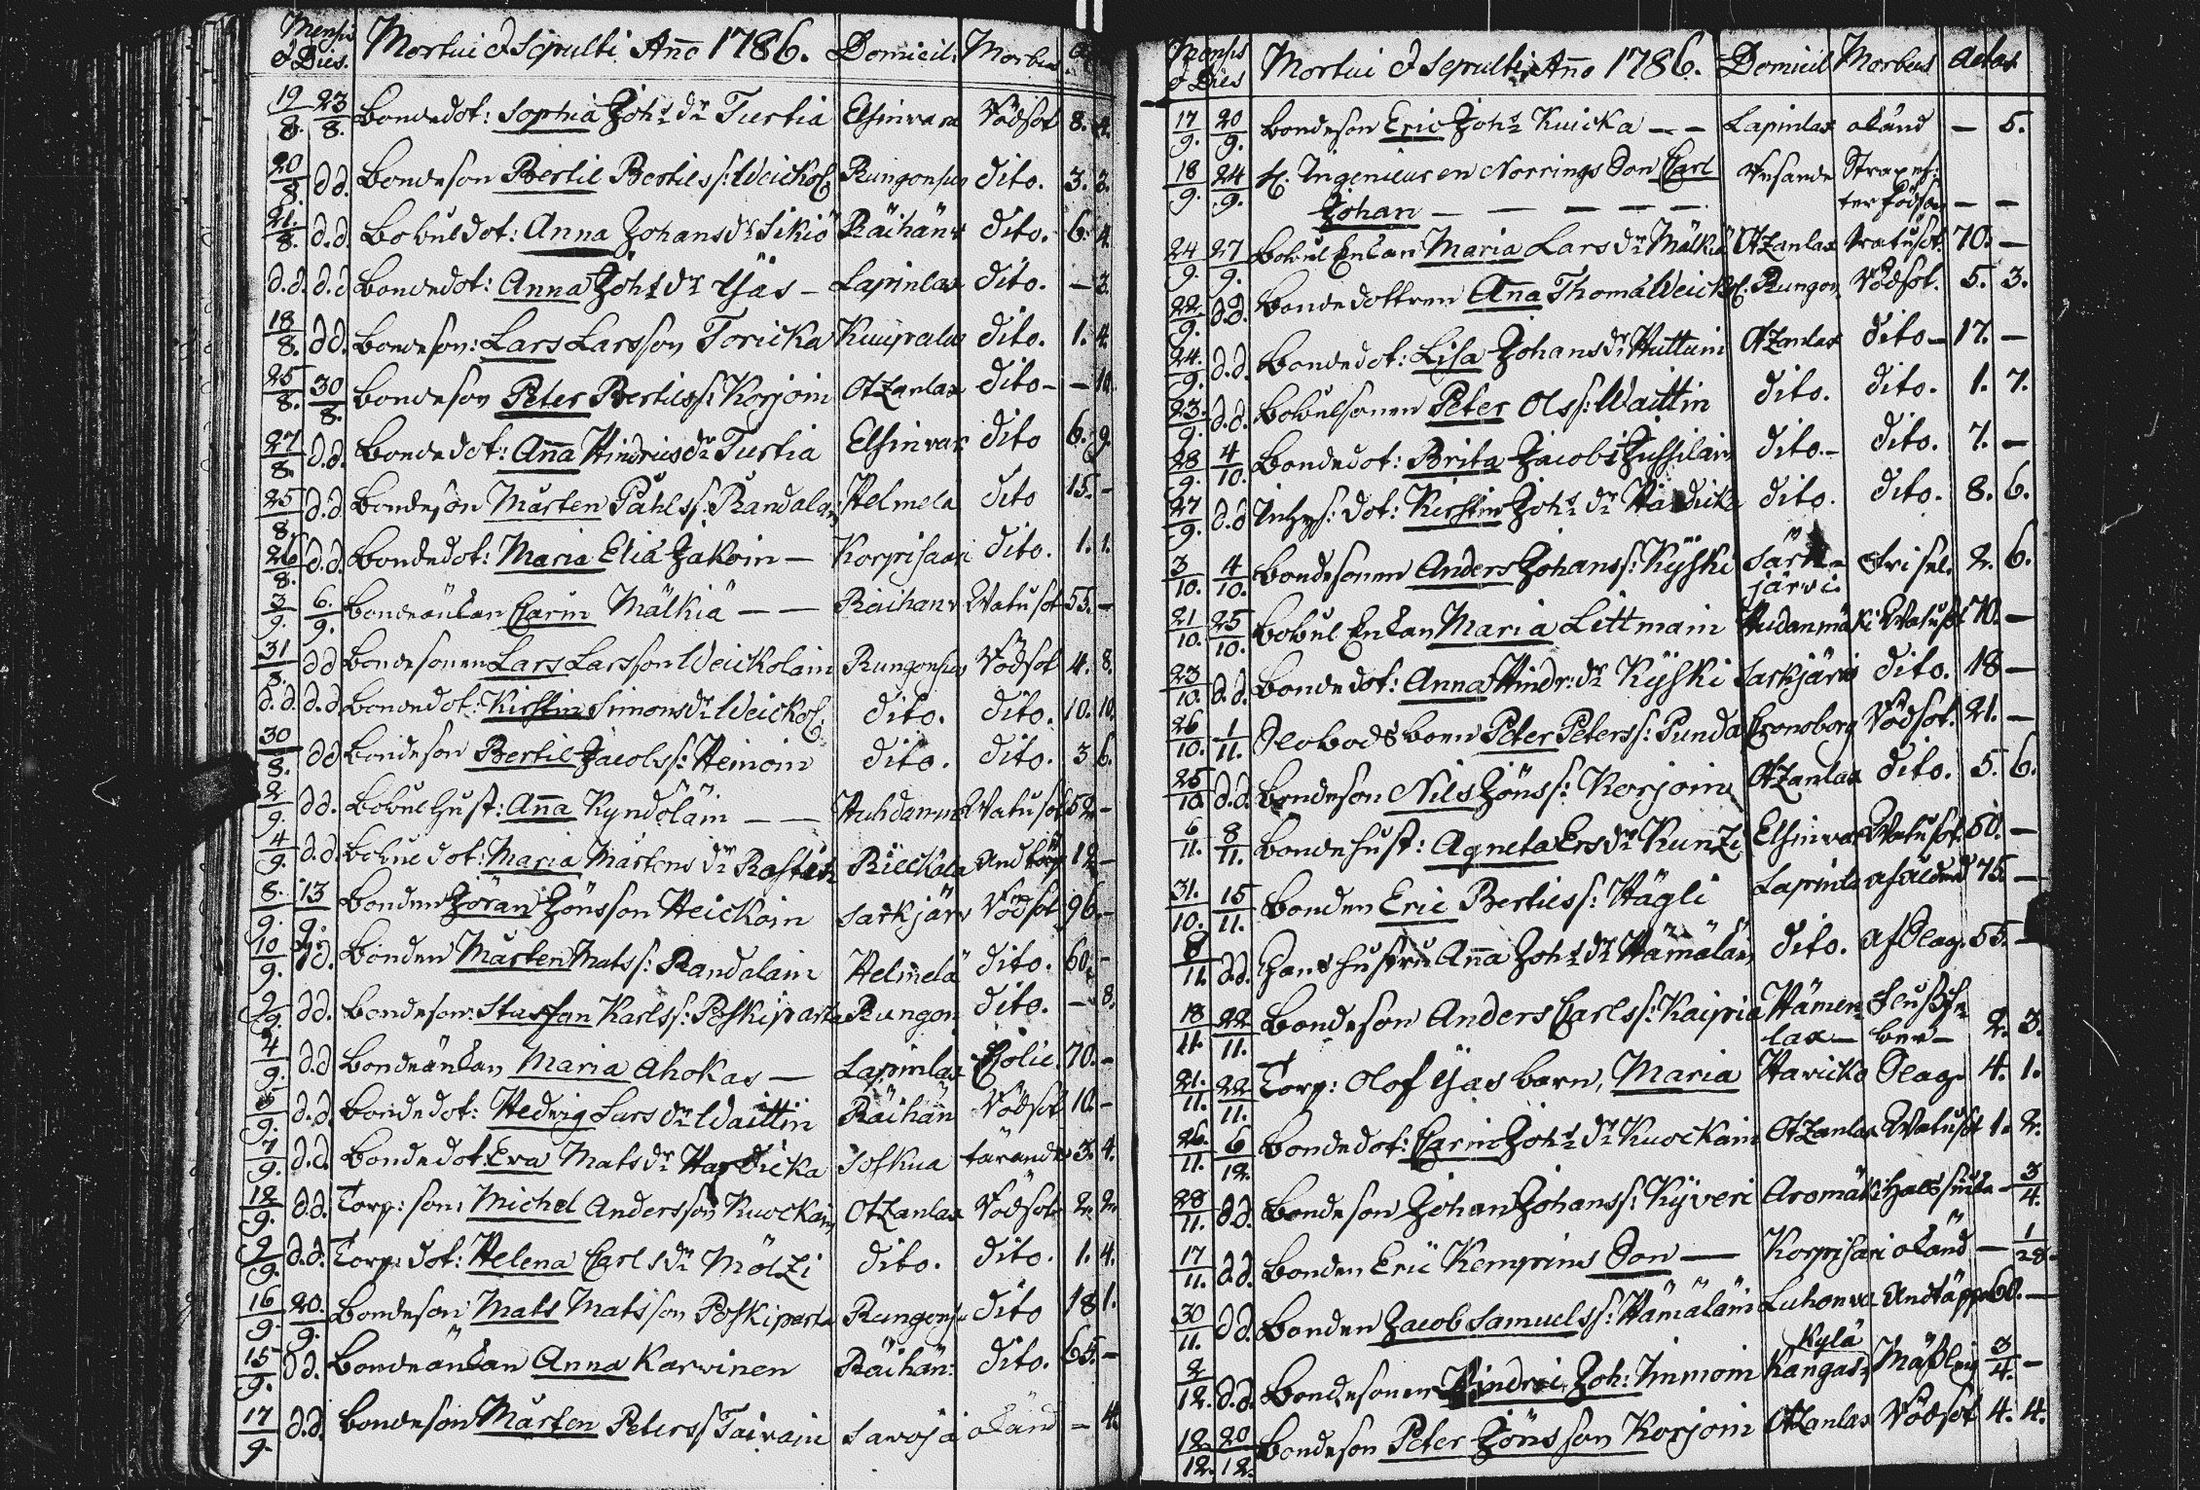 Mensis & Dies. Mortui & Sepulti Año 1786. Domicil: Morbus
19/8. 23/8. Bondedot: Sophia Joh:s d:r Turtia Elsinvara Rödsot 8. 4.
20/8. d.d. Bondeson Bertil Bertilss: Weickol: Rungonsuo dito. 3. 3.
21./8. d.d. Bobuldot: Anna Johans d:r Sikiö Räihänv dito. 6. 4.
d.d. d.d. Bondedot: Anna Joh:s d:r Yjäs – Lapinlax dito. – 3.
18/8. d.d. Bondeson: Lars Larsson Toricka Kuupalax dito. 1. 4.
25/8. 30/8. Bondeson Peter Bertilss: Korjoin Otzanlax dito – – 10.
27/8. d.d. Bondedot: Aña Hindrics d:r Turtia Elsinvar dito 6. 9.
25/8. d.d. Bondeson Mårten Påhlss: Randalain Helmelä dito 15. –
26/8. d.d. Bondedot: Maria Eliæ Jakoin – Korpisaari dito. 1. 1.
3/9. 6./9. Bondeänkan Carin Mälkiä – – Räihänv Watusot 55. –
31/8. d.d. Bondesonen Lars Larsson Weickolain Rungonsuo Rödsot 4. 8.
d.d. d.d. Bondedot: Kirstin Simons d:r Weickol: dito. dito. 10. 10.
30/8. d.d. Bondeson Bertil Jacobss: Heinoin dito. dito. 3 6.
2/9. d.d. Bobul Hust: Aña Kyndöläin – – Huhdanmä Watusot 52. –
4/9. d.d. Bobul dot: Maria Mårtens d:r Rastas Rieckala Andtäp 12. –
8./9. 13/9. Bonden Jöran Jönsson Heickoin Särkjärv Rödsot 96. –
10/9. d.d. Bonden Mårten Matss: Randalain Helmelä dito. 60. –
9/9. d.d. Bondeson: Staffan Karlss: Poskiparta Rungon: dito. – 8.
4/9. d.d. Bondeänkan Maria Ahokas – Lapinlax Colic. 70. –
5/9. d.d. Bondedot: Hedvig Lars d:r Waittin Räihän Rödsot 10. –
7/9. d.d. Bondedot: Eva Mats d:r Hardicka Soskua tärande 3. 4.
12/9. d.d. Torp: son: Michel Andersson Kuockain Otzanlax Rödsot 2. 2.
9/9. d.d. Torp: dot: Helena Carls d:r Mölzi dito. dito. 1. 4.
16/9. 20./9. Bondeson: Mats Matsson Poskiparta Rungonsu dito 18 1.
15/9. d.d. Bondeänkan Anna Karvinen Räihän: dito. 65. –
17/9 d.d. Bondeson Mårten Peterss: Taivain Savoja okänd – 4.
Mensis & Dies Mortui & Sepulti Año 1786. Domicil Morbus Aetas
17/9. 20/9. Bondeson Eric Joh:s Kuicka – – Lapinlax okänd – 5.
18/9. 24/9. H. Ingenieuren Norrings Son Carl Resande Strax ef-
Johan – – – – – – ter födsen – –
24/9. 27/9. Bobul Enkan Maria Lars d:r Mälkiä Otzanlax Watusot 70. –
22./9. d.d. Bondedottren Aña Thomæ Weickol. Rungon Rödsot. 5. 3.
24./9. d.d. Bondedot: Lisa Johans d:r Huttuin Otzanlax dito – 17. –
23./9. d.d. Bobulsonen Peter Olss: Waittin dito. dito. 1. 7.
28/9. 4/10. Bondedot: Brita Jacobi Jussilain dito. – dito. 7. –
27/9. d.d. Inhys: dot: Kirstin Joh:s d:r Hardicka dito. dito. 8. 6.
3/10. 4/10. Bondesonen Anders Johanss: Kyyski Särk-
järvi. 2. 6.
21/10. 25/10. Bobul Enkan Maria Littmain Huhdanmäki Watusot 70. –
23/10. d.d. Bondedot: Anna Hindr: d:r Kyyski Särkjärv dito. 18 –
26/10. 1/11. Slobodsboen Peter Peterss: Punda Cronoborg Rödsot. 21. –
25/10. d.d. Bondeson Nils Jönss: Korjoin Otzanlax dito. 5. 6.
6/11. 8/11. Bondehust: Agneta Ers d:r Kunzi Elsinvar Watusot. 50. –
31./10. 15/11. Bonden Eric Bertilss: Hägli Lapinla af ålderd 75. –
8/11. d.d. Hans hustru Aña Joh:s d:r Hämäläin dito. af Slag. 55. –
18/11. 22/11. Bondeson Anders Carlss: Kaipia Hämen-
lax – 2. 3.
21./11. 22/11. Torp: Olof Yjäs barn, Maria Haricko Slag. 4. 1.
26./11. 6/12. Bondedot: Carin Joh:s d:r Kuockain Otzanlax Watusot 1. 2.
28/11. d.d. Bondeson Johan Johanss: Kyyveri Aromäki – 3/4.
17/11. d.d. Bonden Eric Kempins Son – Korpisari okänd – 1/28.
30/11. d.d. Bonden Jacob Samuelss: Hämäläin Luhonva Andtäppa 60. –
2/12. d.d. Bondesonen Hindric Joh: Immoin Kylä
Kangas: Mäßling 3/4. –
12./12. 20/12. Bondeson Peter Jönsson Korjoin Otzanlax Rödsot 4. 4.